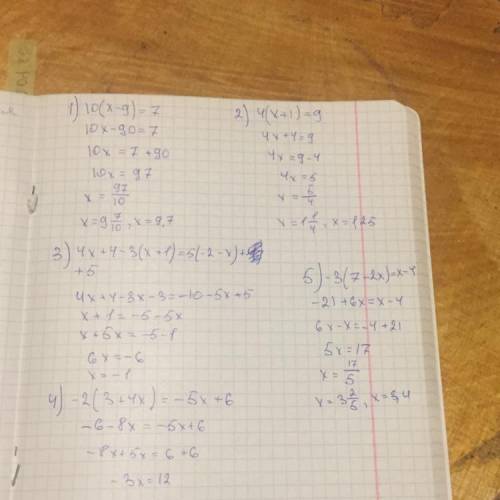 1) 10(x-9)=7
10x-90=7
10x=7+90
10x=97
x=97/10
x=9 7/10, x=9,7
2) 4(x+1)=9
4x+4=9
4x=9-4
4x=5
x=5/4
x=1 1/4, x=1,25
3) 4x+4-3(x+1)=5(-2-x)+
+5
4x+4-3x-3=-10-5x+5
x+1=-5-5x
x+5x=-5-1
6x=-6
x=-1
4) -2(3+4x)=-5x+6
-6-8x=-5x+6
-8x+5x=6+6
-3x=12
5) -3(7-2x)=x-4
-21+6x=x-4
6x-x=-4+21
5x=17
x=17/5
x=3 2/5, x=3,4